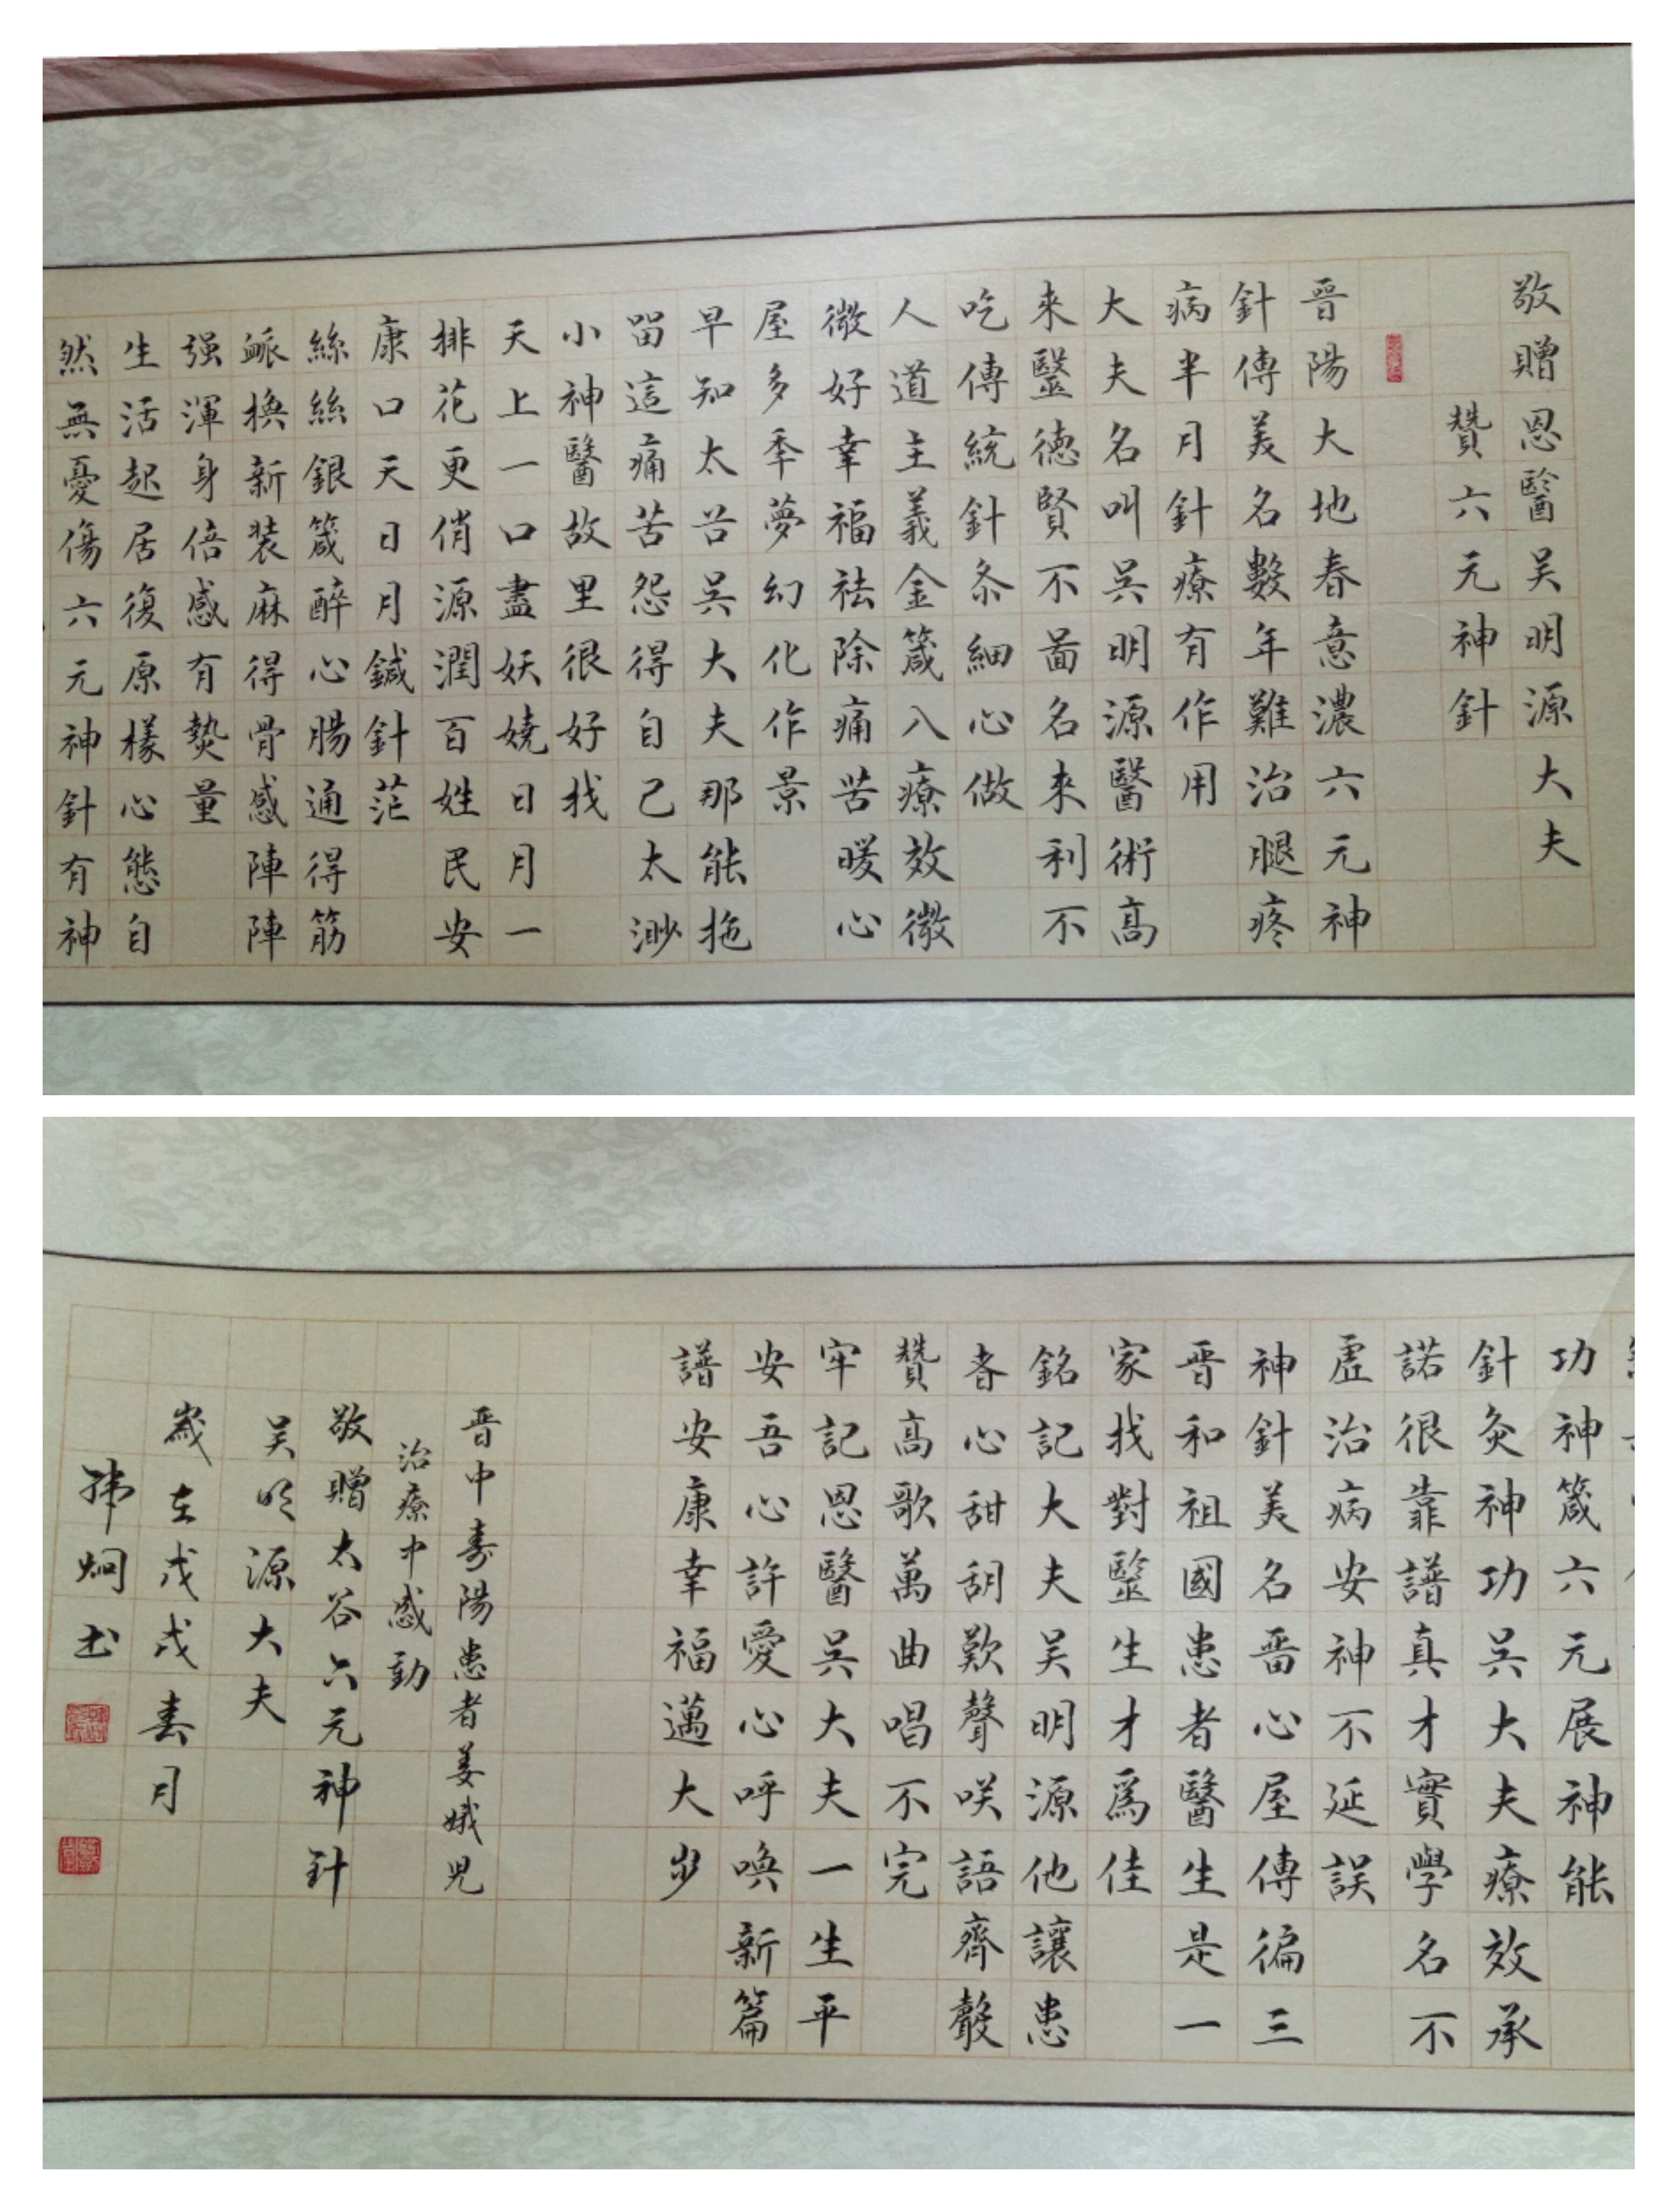 敬贈恩醫吴明源大夫
贊六元神針
晉陽大地春意濃六元神
針傳美名數年難治腿疼
病半月針療有作用
大夫名叫呉明源醫術高
來毉德賢不啚名來利不
吃傳統針条細心做
人道主義金箴八療效微
微好幸福祛除痛苦暖心
屋多季夢幻化作景
早知太谷呉大夫那能拖
留這痛苦怨得自己太渺
小神醫故里很好找
天上一口盡妖娆日月一
排花更俏源潤百姓民安
康口天日月鍼針茫
絲絲銀箴醉心腸通得筋
脈換新装麻得骨感陣陣
强渾身倍感有爇量
生活起居復原樣心態自
然無憂傷六元神針有神
功神箴六元展神能
針灸神功呉大夫療效承
諾很靠譜真才實學名不
虚治病安神不延誤
神針美名晋心屋傳徧三
晋和祖國患者醫生是一
家找對毉生才爲佳
銘記大夫吴明源他讓患
者心甜刮歎聲咲語齊聲
贊高歌萬曲唱不完
牢記恩醫呉大夫一生平
安吾心許愛心呼喚新篇
譜安康幸福邁大步
晋中寿陽患者姜娥児
治療中感動
敬贈太谷六元神針
吴明源大夫
歲在戊戌春月
炯书